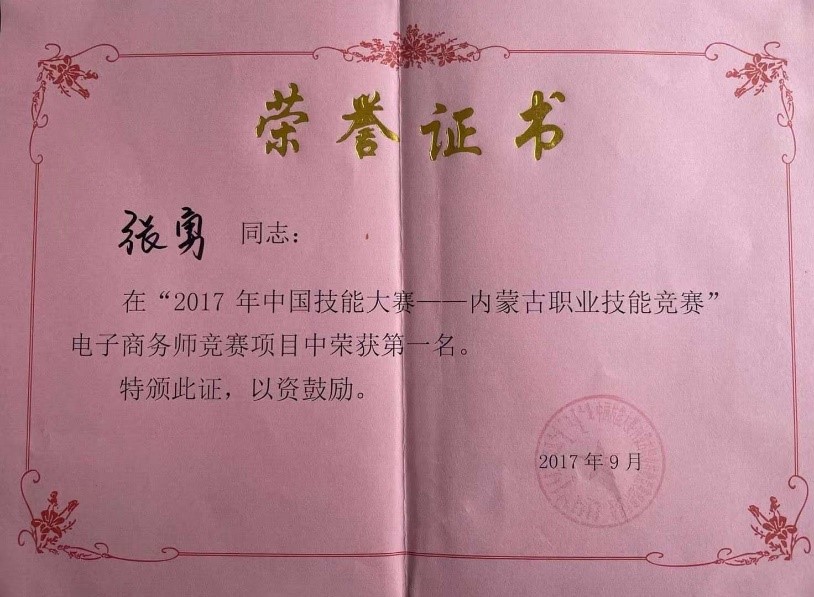 荣誉证书
张勇 同志：
在“2017 年中国技能大赛——内蒙古职业技能竞赛”
电子商务师竞赛项目中荣获第一名。
特颁此证，以资鼓励。
2017 年 9 月